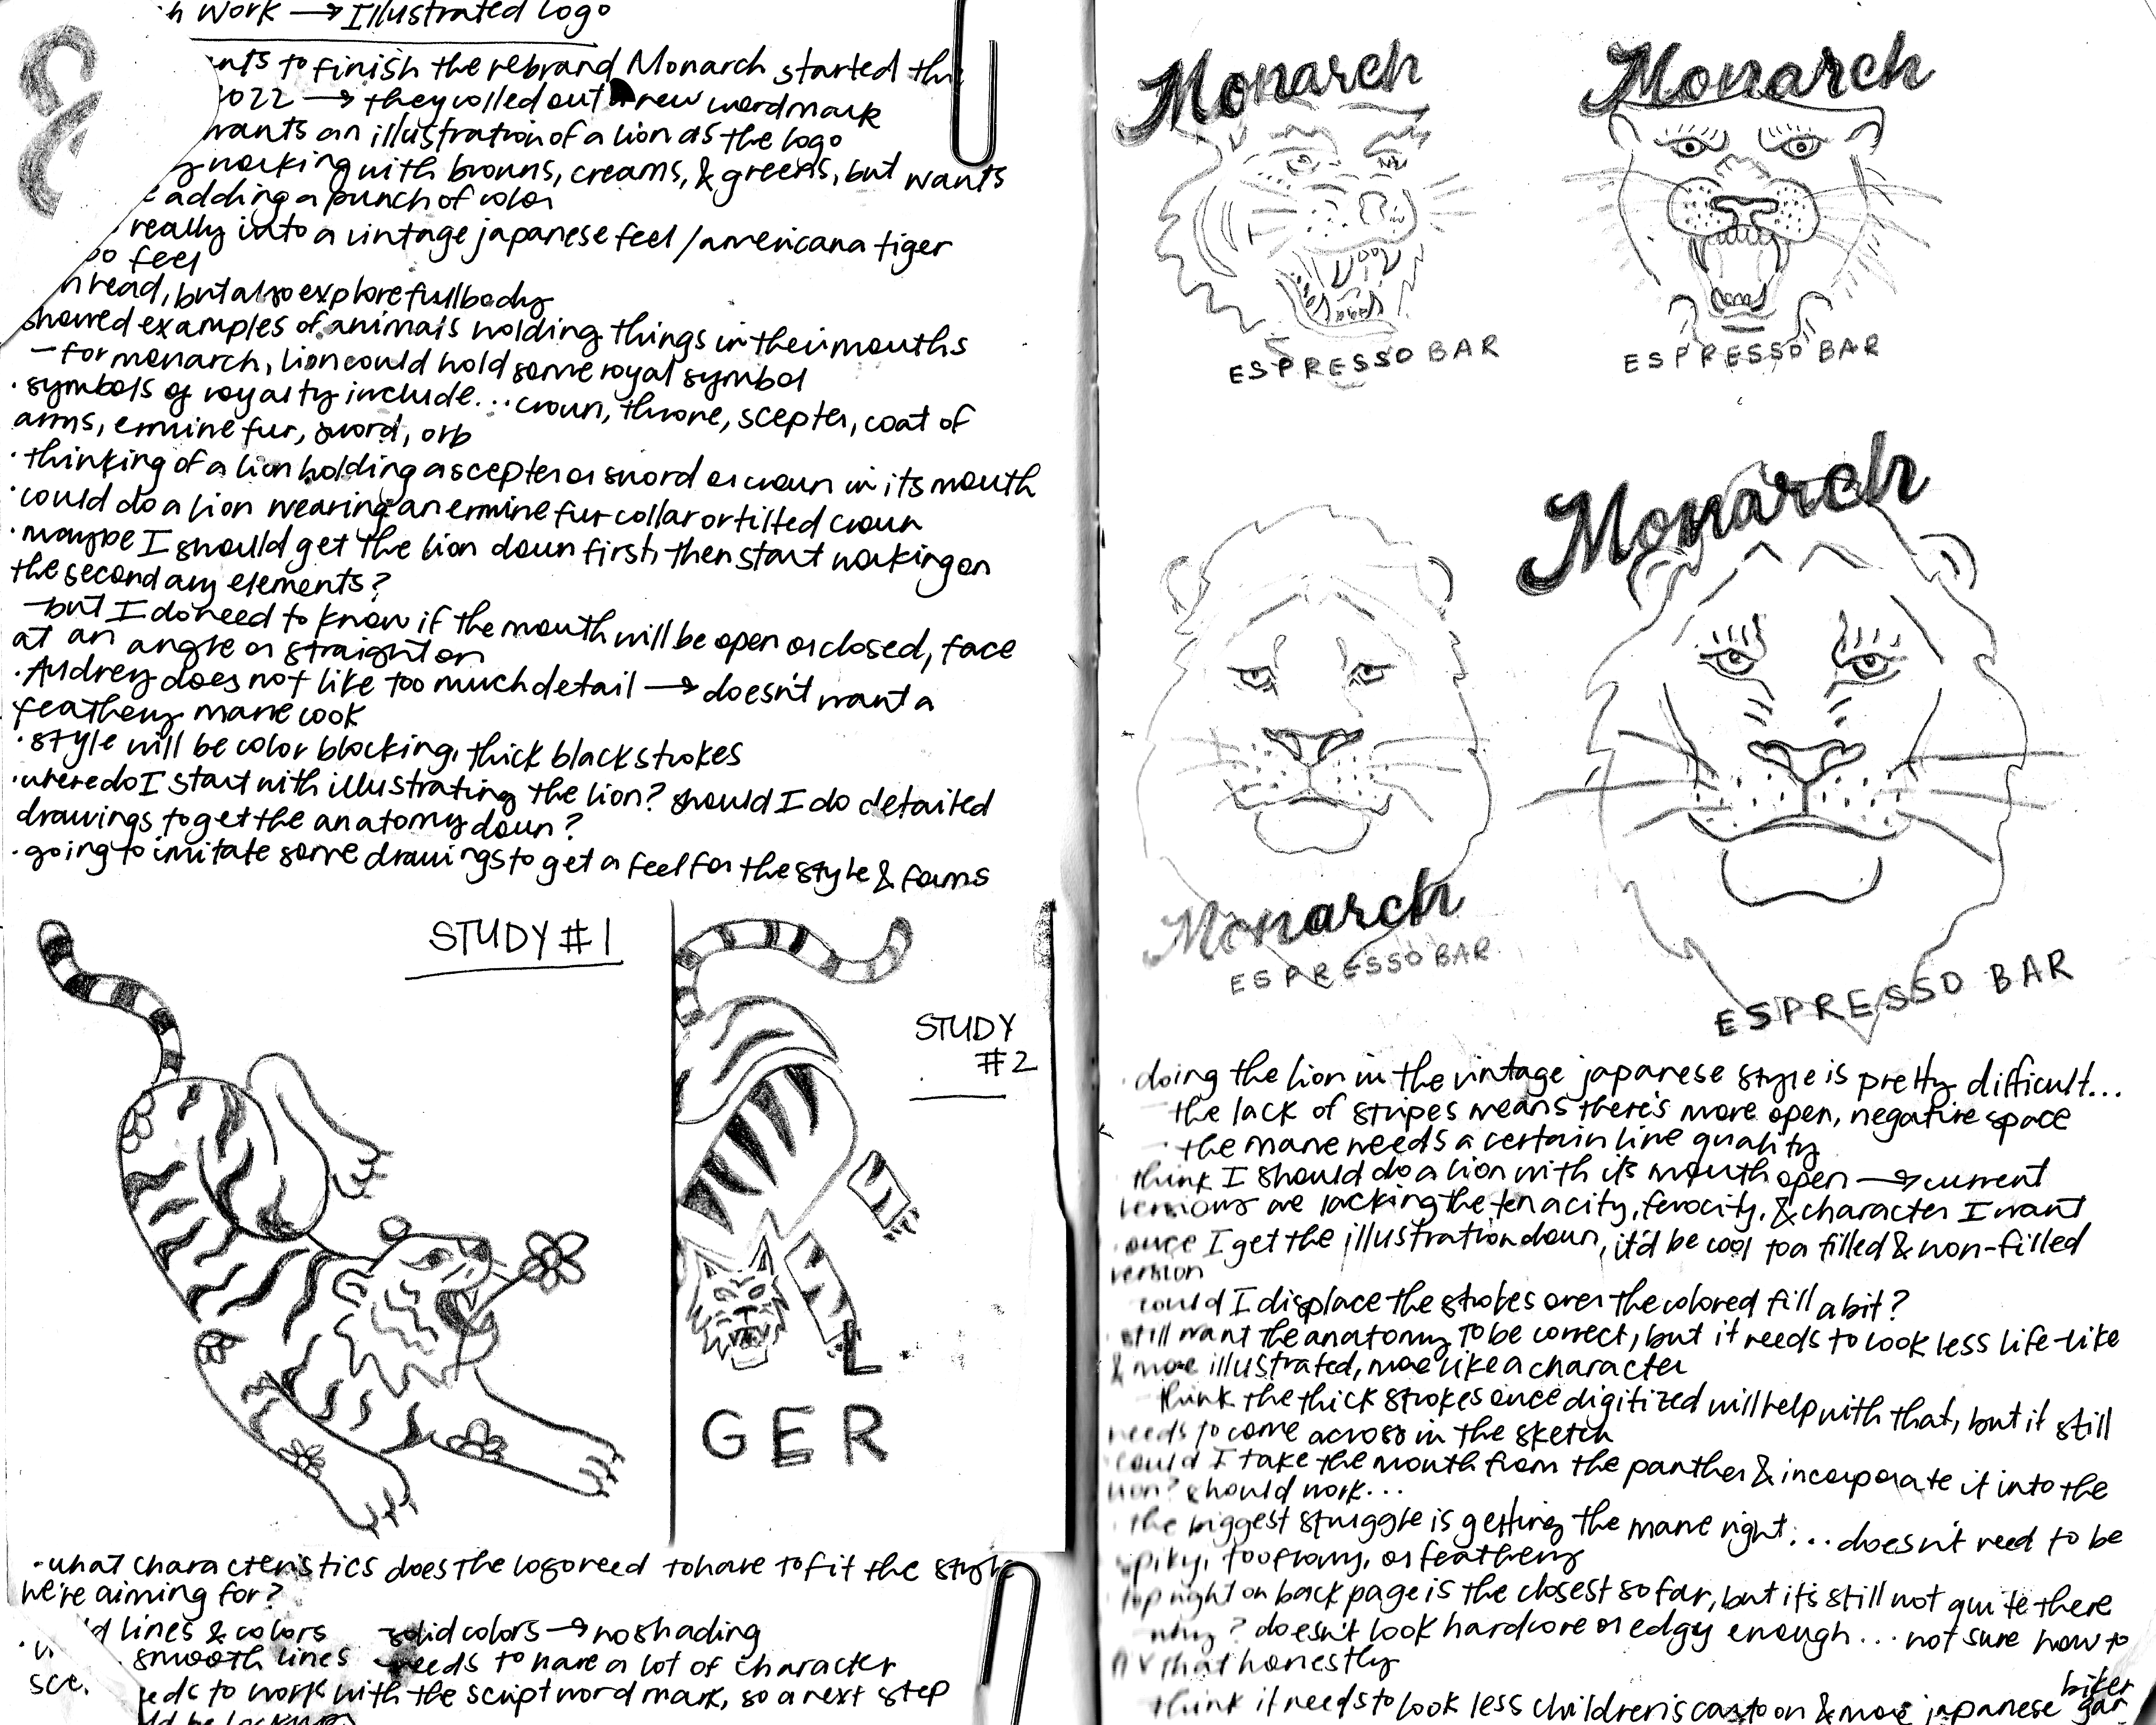 h work → Illustrated logo
nts to finish the rebrand Monarch started th
2022 → they rolled out a new wordmark
wants an illustration of a lion as the logo
y working with browns, creams, & greens, but wants
adding a punch of color
really into a vintage japanese feel / americana tiger
oo feel
n head, but also explore full body
showed examples of animals holding things in their mouths
- for monarch, lion could hold some royal symbol
· symbols of royalty include... crown, throne, scepter, coat of
arms, ermine fur, sword, orb
· thinking of a lion holding a scepter or sword or crown in its mouth
· could do a lion wearing an ermine fur collar or tilted crown
· maybe I should get the lion down first, then start working on
the secondary elements?
- but I do need to know if the mouth will be open or closed, face
at an angle or straight on
· Audrey does not like too much detail → doesn't want a
feathery mane look
· style will be color blocking, thick black strokes
· where do I start with illustrating the lion? should I do detailed
drawings to get the anatomy down?
· going to imitate some drawings to get a feel for the style & forms
STUDY #1
STUDY
#2
L
GER
· what characteristics does the logo need to have to fit the style
we're aiming for?
d lines & colors
- solid colors → no shading
smooth lines
- needs to have a lot of character
eeds to work with the script word mark, so a next step
ld be lockups
Monarch
ESPRESSO BAR
Monarch
ESPRESSO BAR
Monarch
ESPRESSO BAR
Monarch
ESPRESSO BAR
· doing the lion in the vintage japanese style is pretty difficult...
- the lack of stripes means there's more open, negative space
- the mane needs a certain line quality
think I should do a lion with its mouth open → current
versions are lacking the tenacity, ferocity, & character I want
· once I get the illustration down, it'd be cool to a filled & non-filled
version
could I displace the strokes over the colored fill a bit?
still want the anatomy to be correct, but it needs to look less life-like
& more illustrated, more like a character
- think the thick strokes once digitized will help with that, but it still
needs to come across in the sketch
could I take the mouth from the panther & incorporate it into the
lion? should work...
· the biggest struggle is getting the mane right... doesn't need to be
spiky, too flowy, or feathery
top right on back page is the closest so far, but it's still not quite there
- why? doesn't look hardcore or edgy enough... not sure how to
fix that honestly
think it needs to look less children's cartoon & more japanese biker gan